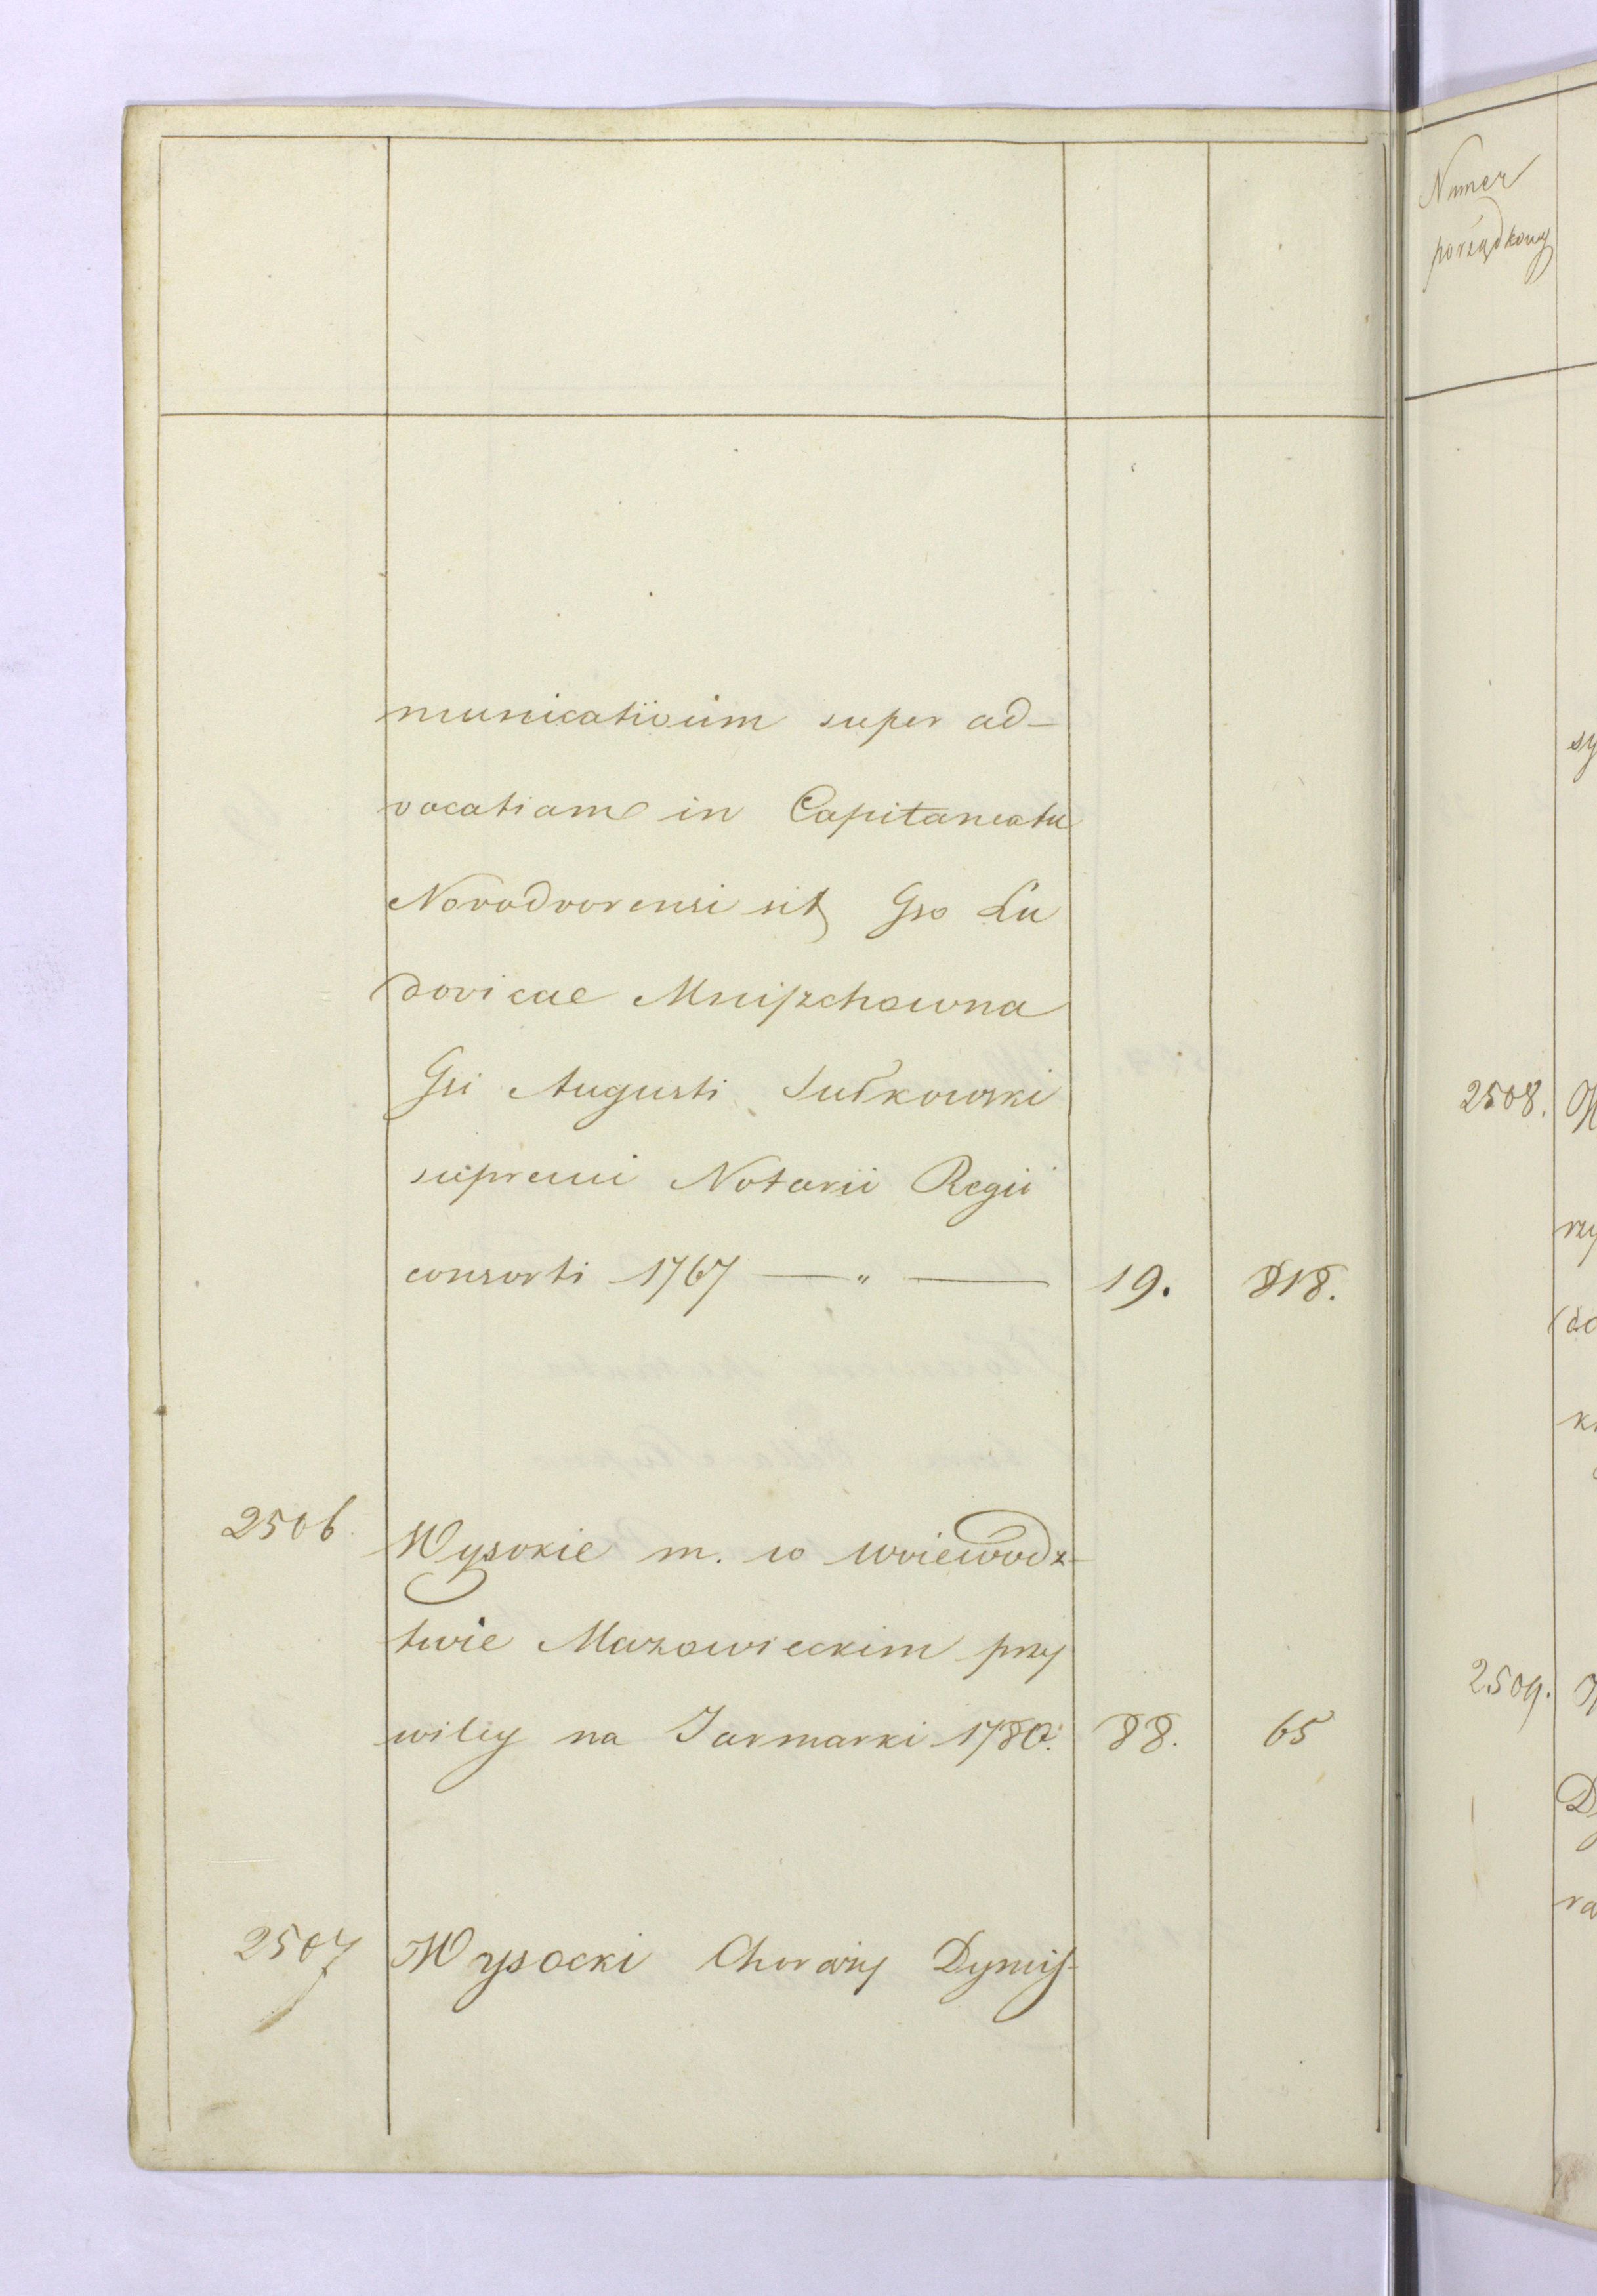 municativum super ad-
vocatiam in Capitaneatu
Novodvorensi sit Gso Lu
dovicae Mniszchowna
Gsi Augusti Sułkowski
supremi Notarii Regii
consorti 1767 — " — 19. 818.
2506. Wysokie m. w woiewodz-
twie Mazowieckim przy
wiley na Jarmarki 1780. 88. 65
2507 Wysocki Chorąży Dymis-
Numer
porządkowy
sy
2508.
rzy
do
2509.
ra